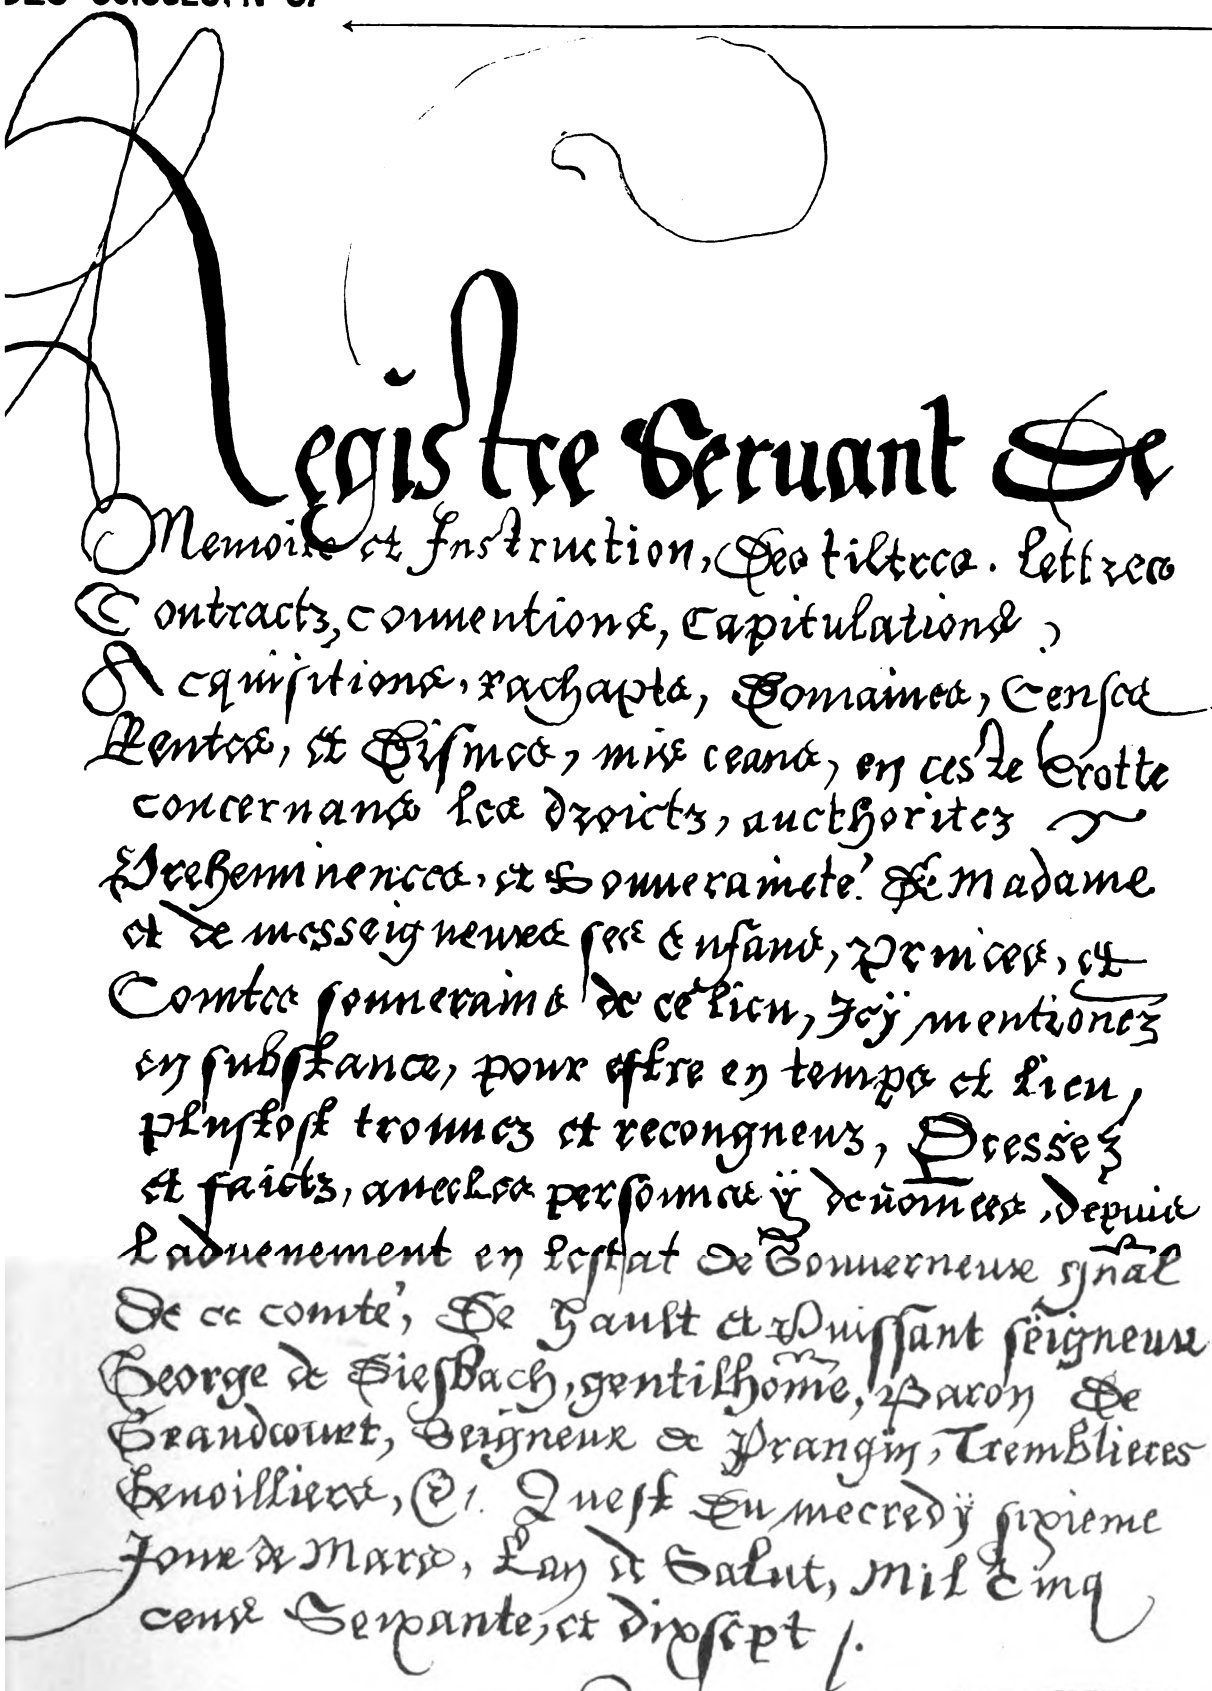 Registre Servant De
Memoire et Instruction, Des tiltres. lettres
Contractz, conuentions, Capitulations,
Acquisitions, rachapts, Domaines, Censes
Rentes, et Disines, mis ceans, en ceste Crotte
concernans les droictz, aucthoritez
Preheminences, et Souueraineté. De Madame
et de messeigneurs ses Enfans, Princes, et
Comtes souuerains de ce lieu, Icÿ mentionez
en substance, pour estre en temps et lieu,
plustost trouuez et recongneuz, Dressez
et faictz, auec les personnes ÿ denomees, depuis
Laduenement en lestat de Gouuerneur gñal
De ce comté, De hault et Puissant seigneur
George de Diesbach, gentilhome, Baron De
Grandcourt, Seigneur de Prangin, Tremblieres
Genoilliers, &. Quest Du mecredÿ sixieme
Jour de Mars, Lan de Salut, Mil Cinq
cens Seixante, et dixsept /.